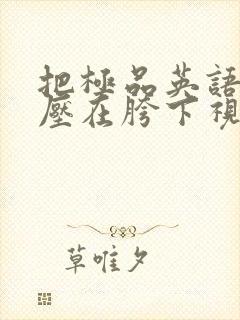 把極品英語
壓在胯下視
草唯夕